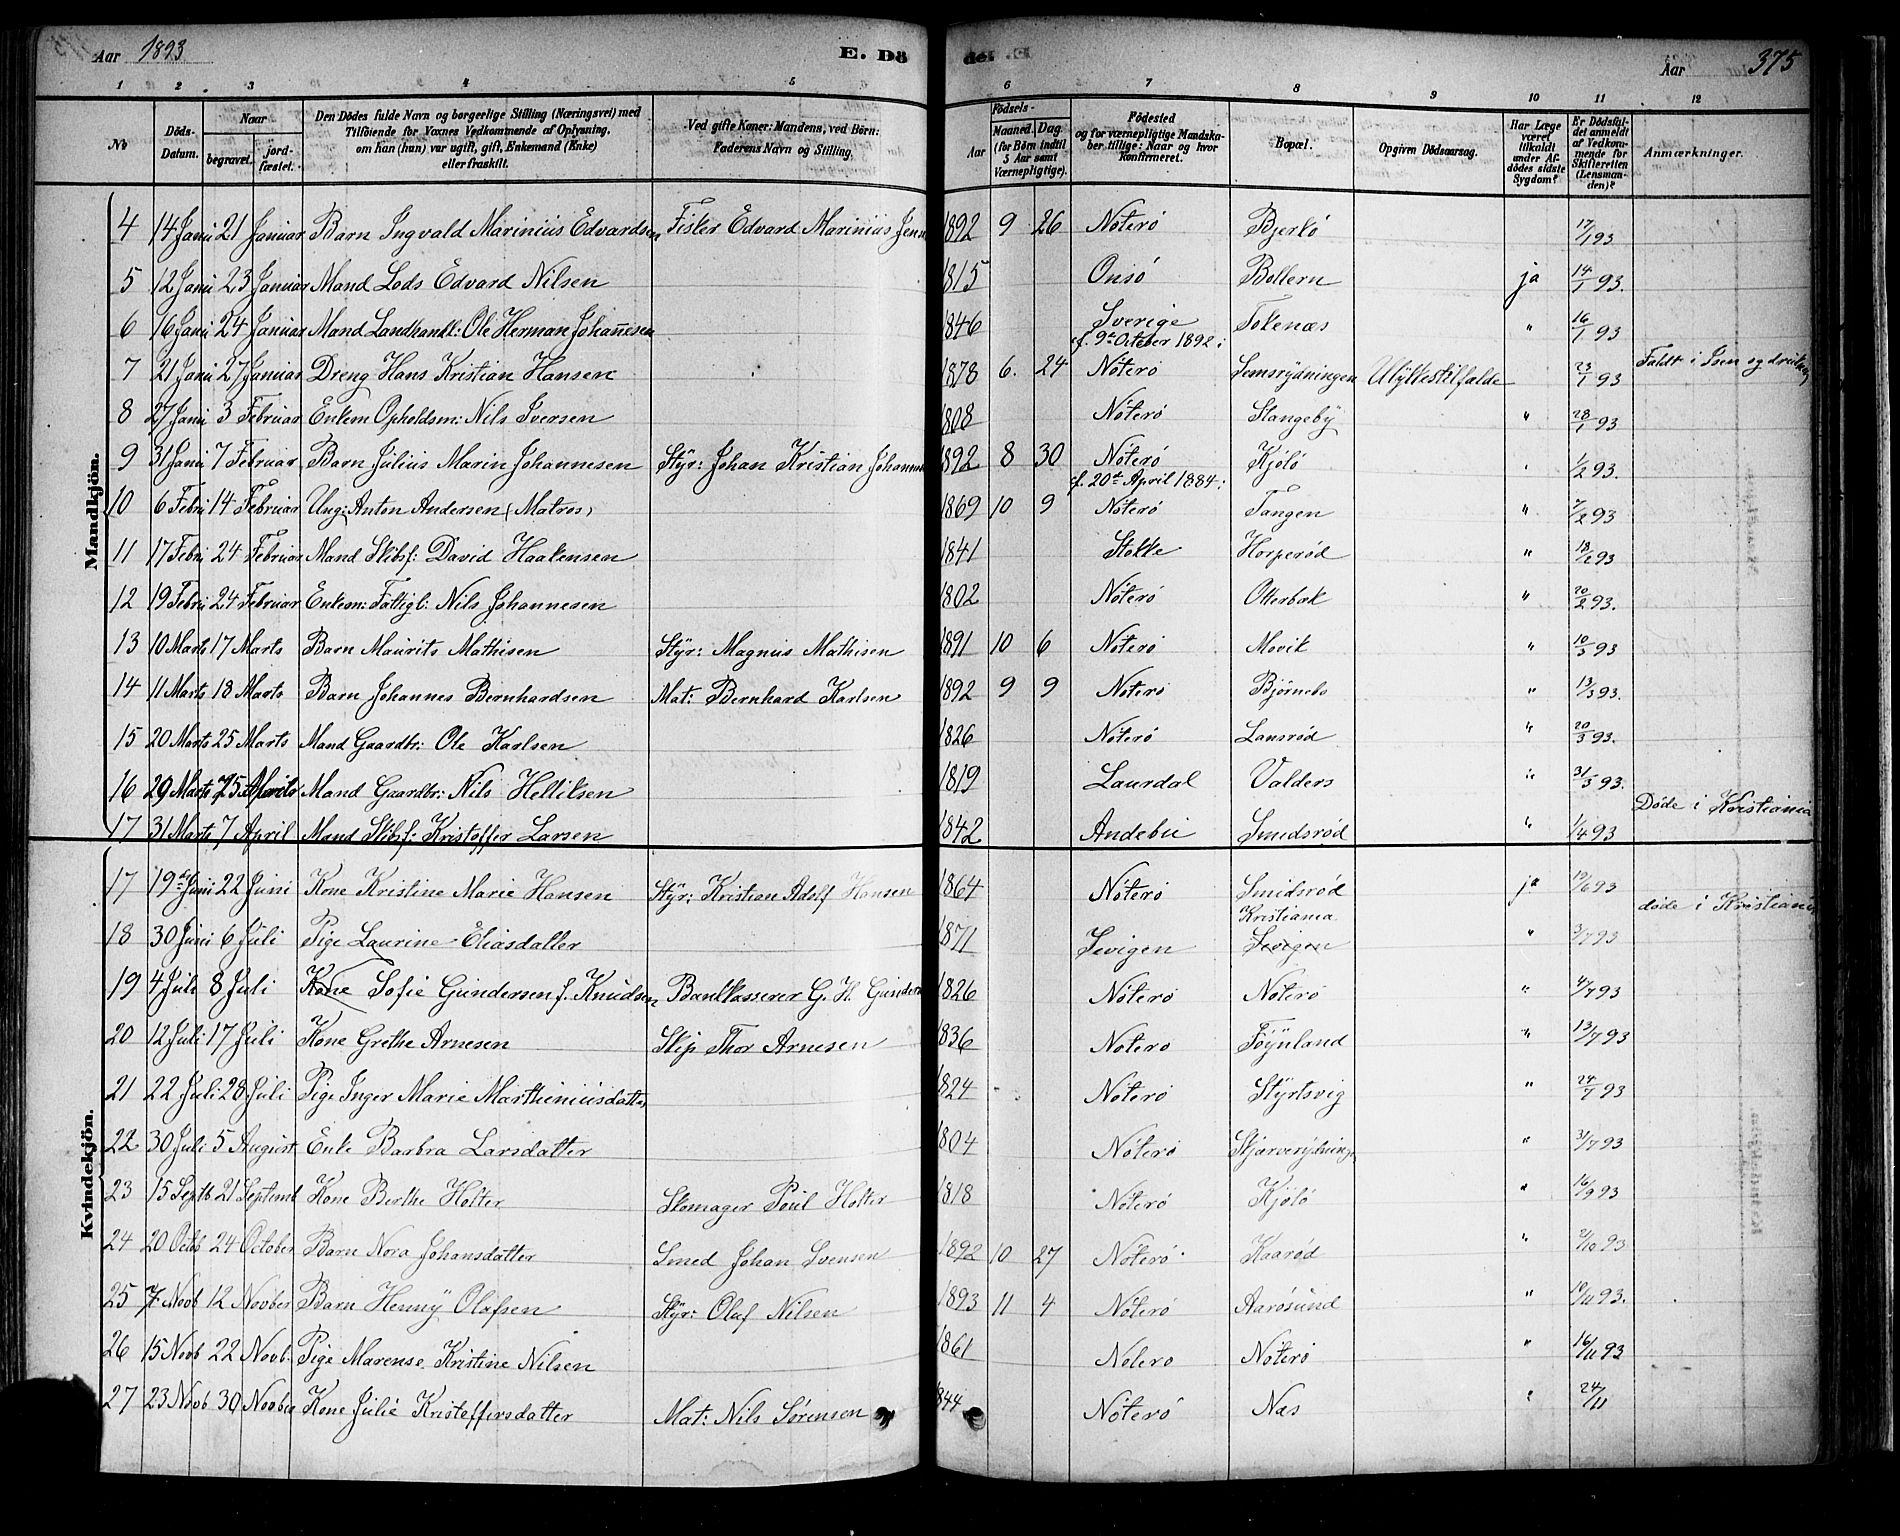 Aar 1893 E. Dö de. Aar 375
1 2 3 4 5 6 7 8 9 10 11 12
No
Döds-Datum.
Naar
begravet.
jord-fæstet.
Den Dödes fulde Navn og borgerlige Stilling (Næringsvei) med
Tilföiende for Voxnes Vedkommende af Oplysning,
om han (hun) var ugift, gift, Enkemand (Enke)
eller fraskilt.
Ved gifte Koner: Mandens, ved Börn:
Faderens Navn og Stilling.
Födsels-
Aar
Maaned. Dag.
(for Börn indtil
5 Aar samt
Værnepligtige).
Födested
og for værnepligtige Mandska-
ber tillige: Naar og hvor
Konfirmeret.
Bopæl.
Opgiven Dödsaarsag.
Har Læge
været
tilkaldt
under Af-
dödes sidste
Sygdom?
Er Dödsfal-
det anmeldt
af Vedkom-
mende for
Skifteretten
(Lensman-
den)?
Anmærkninger.
Mandkjön.
4 14 Janu 21 Januar Barn Ingvald Marinius Edvardsen Fisker Edvard Marinius Jen 1892 9 26 Nøterø Bjerkø 17/1 93
5 12 Janu 23 Januar Mand Lods Edvard Nilsen 1815 Onsø Bollern ja 14/1 93.
6 16 Janu 24 Januar Mand Landhandl: Ole Herman Johannesen 1846 Sverige Tokenæs " 16/1 93
cf. 9de October 1892:
7 21 Janu 27 Januar Dreng Hans Kristian Hansen 1878 6. 24 Nøterø Semsrydningen Ulykkestilfælde 23/1 93 Faldt i Isen og druknede
8 27 Janu 3 Februar Enkem Opholdsm: Nils Iversen 1808 Nøterø Stangeby " 28/1 93
9 31 Janu 7 Februar Barn Julius Marin Johannesen Styr: Johan Kristian Johannes 1892 8 30 Nøterø Kjøle 1/2 93.
cf. 20de April 1884:
10 6 Febru 14 Februar Ung: Anton Andersen (Matros) 1869 10 9 Nøterø Tangen " 7/2 93
11 17 Febru 24 Februar Mand Skibsf: David Haakensen 1841 Stokke Horperød " 18/2 93
12 19 Febru 24 Februar Enkem: Fattigl: Nils Johannesen 1802 Nøterø Otterbæk " 20/2 93.
13 10 Marts 17 Marts Barn Maurits Mathisen Styr: Magnus Mathisen 1891 10 6 Nøterø Movik " 10/3 93
14 11 Marts 18 Marts Barn Johannes Bernhardsen Mat: Bernhard Karlsen 1892 9 9 Nøterø Bjørnebo " 13/3 93.
15 20 Marts 25 Marts Mand Gaardbr: Ole Karlsen 1826 Nøterø Lansrød " 20/3 93.
16 29 Marts Mand Gaardbr: Nils Helliksen 1819 Laurdal Valders " 31/3 93.
17 31 Marts 7 April Mand Skibsf: Kristoffer Larsen 1842 Andebu Smidsrød " 1/4 93 Døde i Kristiania
Kvindekjön.
17 19de Juni 22 Juni Kone Kristine Marie Hansen Styr: Kristian Adolf Hansen 1864 Nøterø Smidsrød ja 19/6 93
18 30 Juni 6 Juli Pige Laurine Eliasdatter 1871 Sevigen Kristiania Sevigen " 3/7 93 døde i Kristiania
19 4 Juli 8 Juli Kone Sofie Gundersen f. Knudsen Bankkasserer G. H. Gunders 1826 Nøterø Nøterø " 4/7 93
20 12 Juli 17 Juli Kone Grethe Arnesen Skip Thor Arnesen 1836 Nøterø Føynland " 13/7 93
21 22 Juli 28 Juli Pige Inger Marie Marthiniusdatter 1824 Nøterø Styrtsvig " 24/7 93
22 30 Juli 5 August Enke Barbra Larsdatter 1804 Nøterø Skjærverydninge " 31/7 93
23 15 Septb 21 Septemb Kone Berthe Holter Skomager Poul Holter 1818 Nøterø Kjøle " 16/9 93
24 20 Octb 24 October Barn Nora Johansdatter Smed Johan Svensen 1892 10 27 Nøterø Kaarød " 2/10 93
25 7 Novb 12 Novber Barn Henny Olafsen Styr: Oluf Nilsen 1893 11 4 Nøterø Aarøsund " 10/11 93.
26 15 Novb 22 Novb. Pige Marense Kristine Nilsen 1861 Nøterø Nøterø " 16/11 93
27 23 Novb 30 Novbe Kone Julie Kristoffersdatter Mat: Nils Sørensen 1844 Nøterø Næs " 24/11